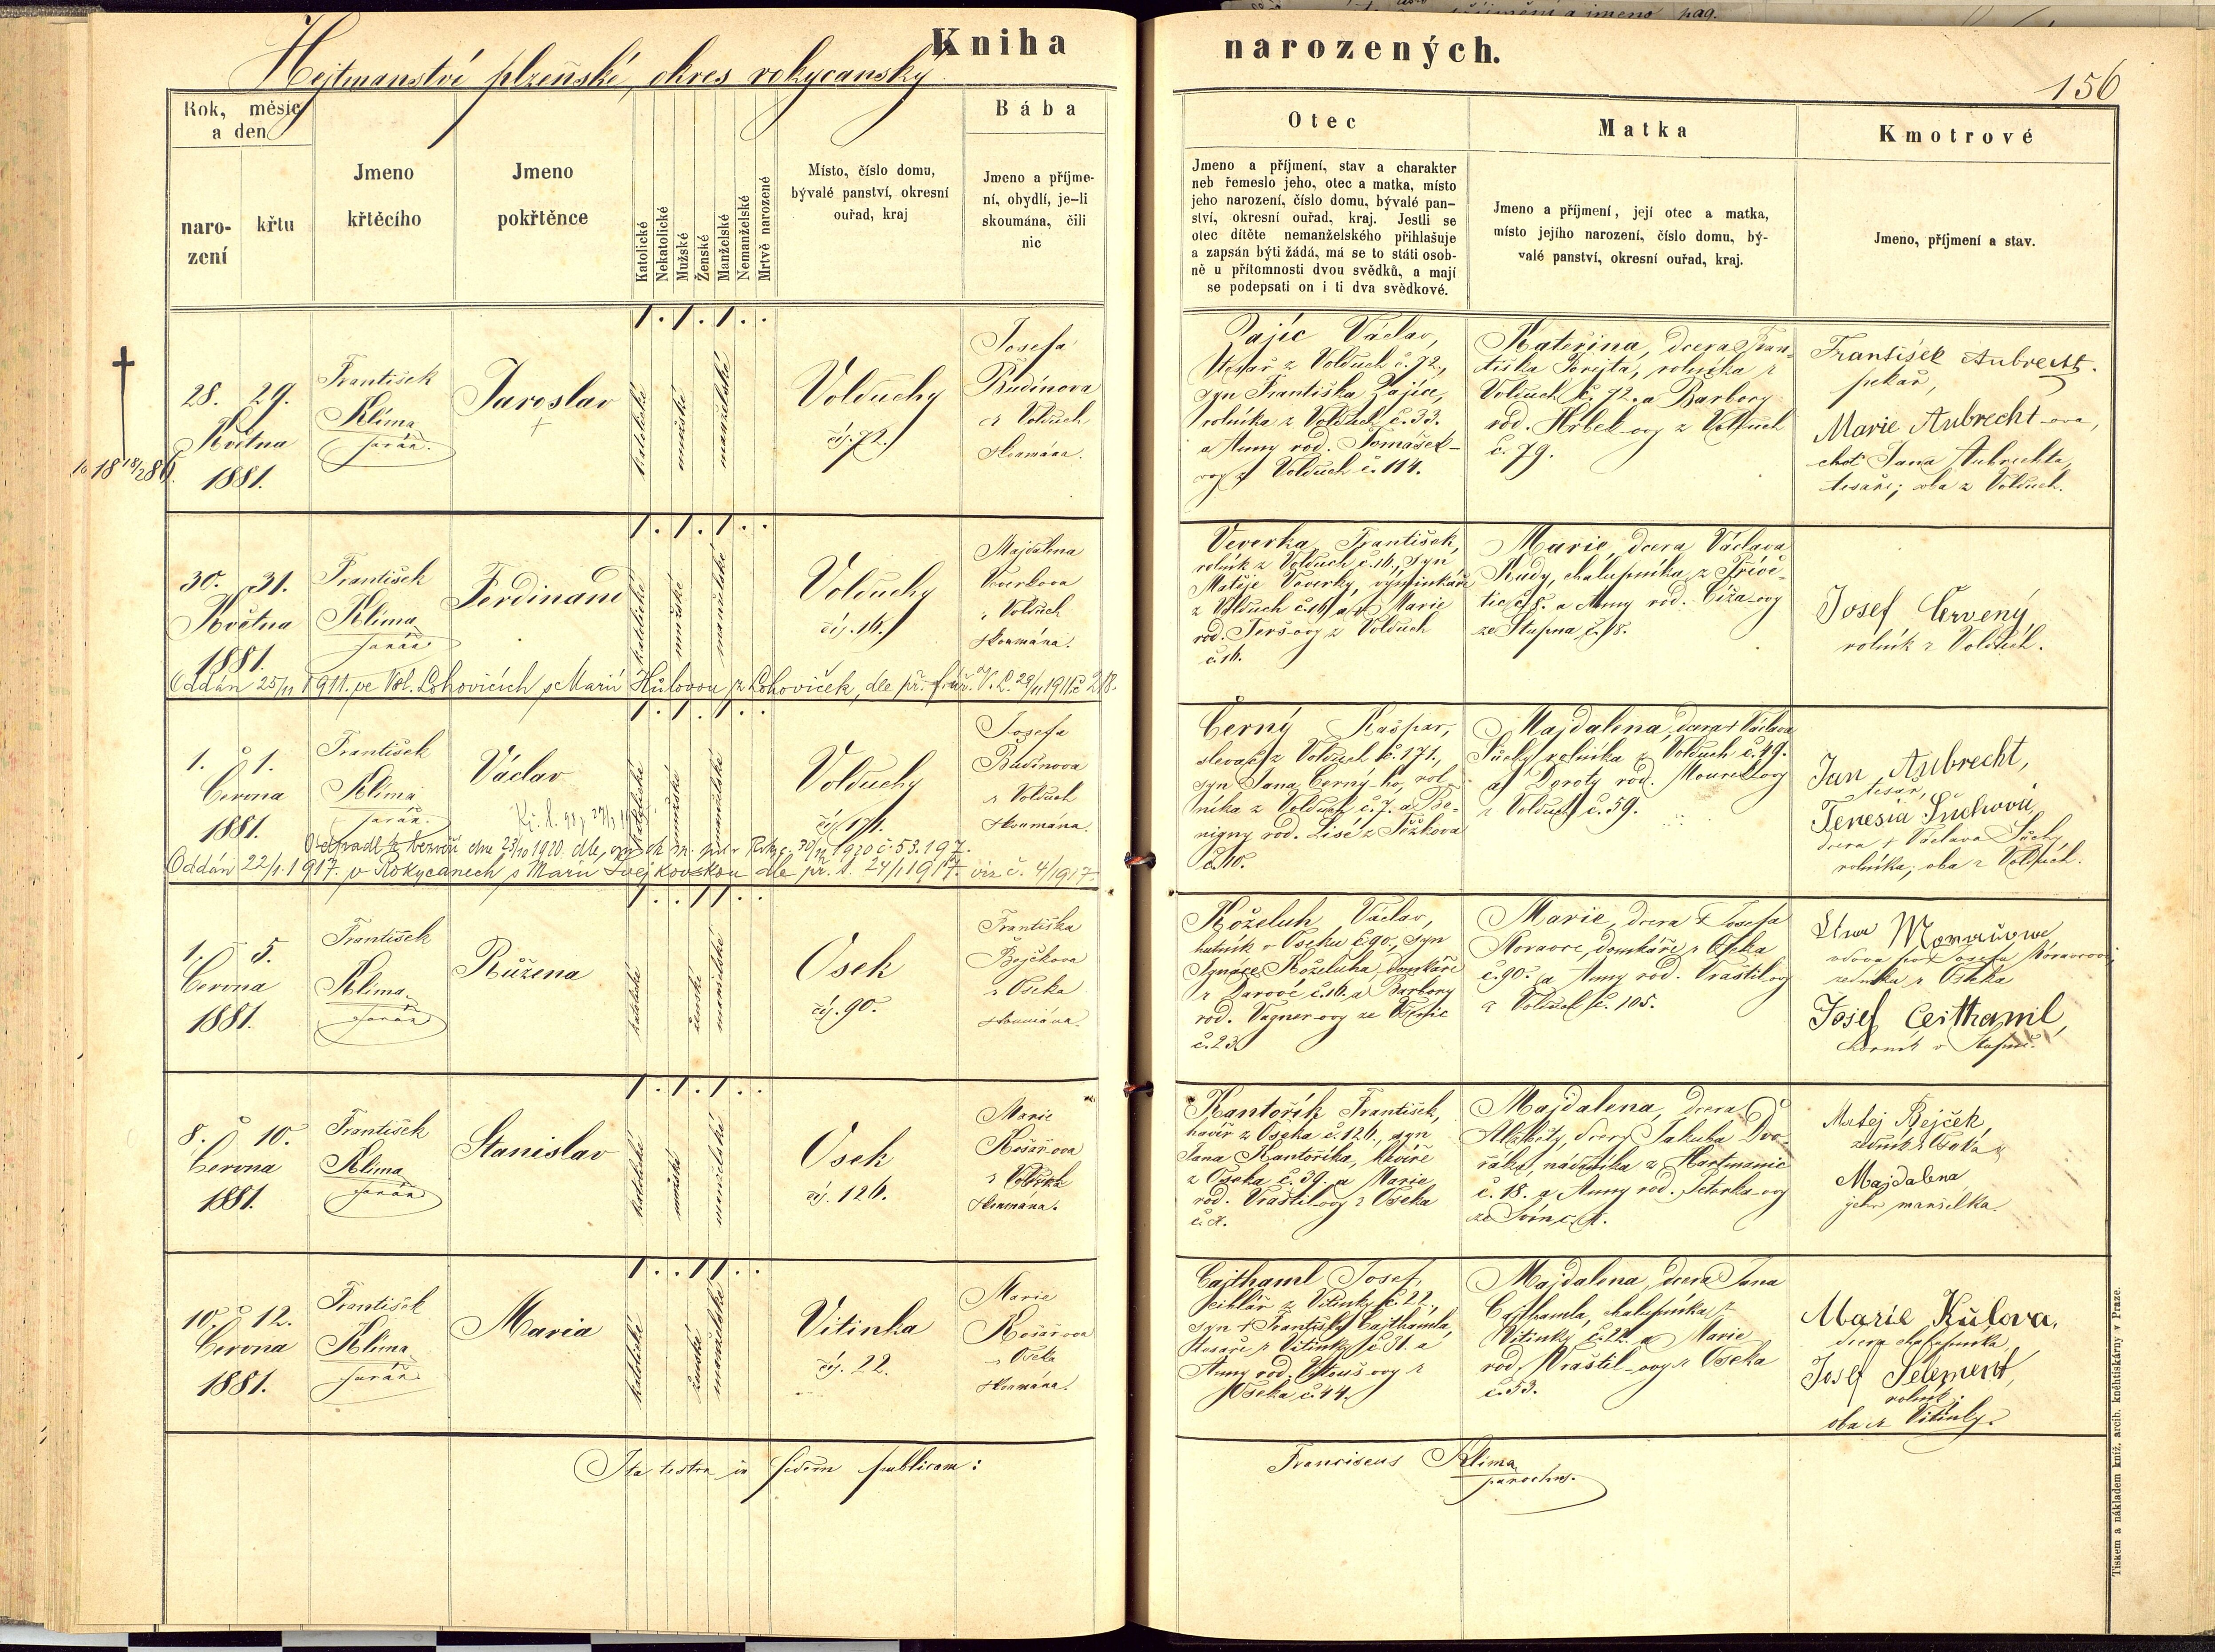 Kniha narozených.
Hejtmanství plzeňské, okres rokycanský
156
Rok, měsíc
a den
naro-
zení
křtu
Jmeno
křtěcího
Jmeno
pokřtěnce
Katolické
Nekatolické
Mužské
Ženské
Manželské
Nemanželské
Mrtvě narozené
Místo, číslo domu,
bývalé panství, okresní
ouřad, kraj
Bába
Jmeno a příjme-
ní, obydlí, je-li
skoumána, čili
nic
Otec
Jmeno a příjmení, stav a charakter
neb řemeslo jeho, otec a matka, místo
jeho narození, číslo domu, bývalé pan-
ství, okresní ouřad, kraj. Jestli se
otec dítěte nemanželského přihlašuje
a zapsán býti žádá, má se to státi osob-
ně u přítomnosti dvou svědků, a mají
se podepsati on i ti dva svědkové.
Matka
Jmeno a příjmení, její otec a matka,
místo jejího narození, číslo domu, bý-
valé panství, okresní ouřad, kraj.
Kmotrové
Jmeno, příjmení a stav.
28. 29.
Května
1881.
František
Klima
farář.
Jaroslav
1. 1. 1. .
katolické
mužské
manželské
Volduchy
čís. 72.
Josefa
Budínova
z Volduch
zkoumána.
Zajíc Václav,
tesař z Volduch č. 72.,
syn Františka Zajíce,
rolníka z Volduch č. 33.
a Anny rod. Tomášek-
ovy z Volduch č. 114.
Kateřina, dcera Fran-
tiška Forejta, rolníka z
Volduch č. 72. a Barbory
rod. Hrbek-ovy z Volduch
č. 79.
František Aubrecht.
pekař,
Marie Aubrecht-ova,
choť Jana Aubrechta,
tesaře; oba z Volduch.
30. 31.
Května
1881.
František
Klima
farář
Ferdinand
1. 1. 1. .
katolické
mužské
manželské
Volduchy
čís. 16.
Majdalena
Veverkova
z Volduch
zkoumána.
Veverka František,
rolník z Volduch č. 16., syn
Matěje Veverky, výminkáře
z Volduch č. 16. a Marie
rod. Terš-ovy z Volduch
č. 16.
Marie, dcera Václava
Rudy, chalupníka z Přívě-
tic č. 8. a Anny rod. Číža-ovy
ze Stupna č. 18.
Josef Červený,
rolník z Volduch.
Oddán 25/11 1911. ve Vel. Lohovicích s Marií Hůlovou z Lohoviček, dle př. f. úř. V. L. 29/11 1911 č. 218.
1. 1.
Června
1881.
František
Klima
farář.
Václav
1. 1. 1. .
katolické
mužské
manželské
Volduchy
čís. 171.
Josefa
Budínova
z Volduch
zkoumána.
Černý Kašpar,
slevač z Volduch č. 171.,
syn Jana Černý-ho, rol-
níka z Volduch č. 7. a Be-
nigny rod. Lisé z Těškova
č. 10.
Majdalena, dcera † Václava
Suchý, rolníka z Volduch č. 49.
a Doroty rod. Mourek-ovy
z Volduch č. 59.
Jan Aubrecht,
tesař,
Teresia Suchová
dcera † Václava Suchý
rolníka; oba z Volduch.
Oddán 22/1. 1917. v Rokycanech s Marií Švejkovskou dle př. l. 24/1 1917. viz č. 4/1917.
1. 5.
Června
1881.
František
Klima
farář
Růžena
1. . 1 1 . .
katolické
ženské
manželské
Osek
čís. 90.
Františka
Bejčkova
z Oseka
zkoumána.
Koželuh Václav,
hutník v Oseku č. 90., syn
Ignáce Koželuha, domkáře
z Darové č. 16. a Barbory
rod. Vagner-ovy ze Všenic
č. 23.
Marie, dcera † Josefa
Moravce, domkáře z Oseka
č. 90. a Anny rod. Vraštil-ovy
z Volduch č. 105.
vdova po † Josefu Moravcovi,
zedníka z Oseka
Josef Ceithaml,
horník v Stupně.
8. 10.
Června
1881.
František
Klima
farář
Stanislav
1. 1. 1. .
katolické
mužské
manželské
Osek
čís. 126.
Marie
Košařova
z Oseka
zkoumána.
Kantořík František,
havíř z Oseka č. 126., syn
Jana Kantoříka, havíře
z Oseka č. 39. a Marie
rod. Vraštil-ovy z Oseka
Majdalena, dcera
Alžběty, dcery Jakuba Dvo-
řáka, nádeníka z Hartmanic
č. 18. a Anny rod. Seterka-ovy
Matěj Bejček,
zedník z Oseka a
Majdalena
jeho manželka.
10. 12.
Června
1881.
František
Klima
farář
Maria
1. . 1 1 . .
katolické
ženské
manželské
Vitinka
čís. 22.
Marie
Košařova
z Oseka
zkoumána.
Cajthaml Josef,
cihlář z Vitinky č. 22.,
syn † Františka Cajthamla,
tesaře z Vitinky č. 31. a
Anny rod. Matouš-ovy z
Oseka č. 44.
Majdalena, dcera Jana
Cajthamla, chalupníka z
Vitinky č. 22. a Marie
rod. Vraštil-ovy z Oseka
č. 53.
Marie Kůlova,
dcera chalupníka
Josef Selement,
rolník;
oba z Vitinky.
Ita testor in fidem publicam:
Franciscus Klima
parochus.
Tiskem a nákladem kníž. arcib. knihtiskárny v Praze.